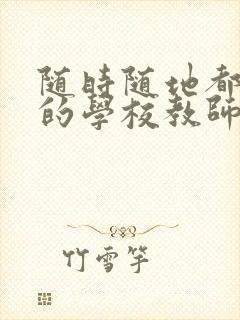 随時随地都
的學校教師
竹雪竿